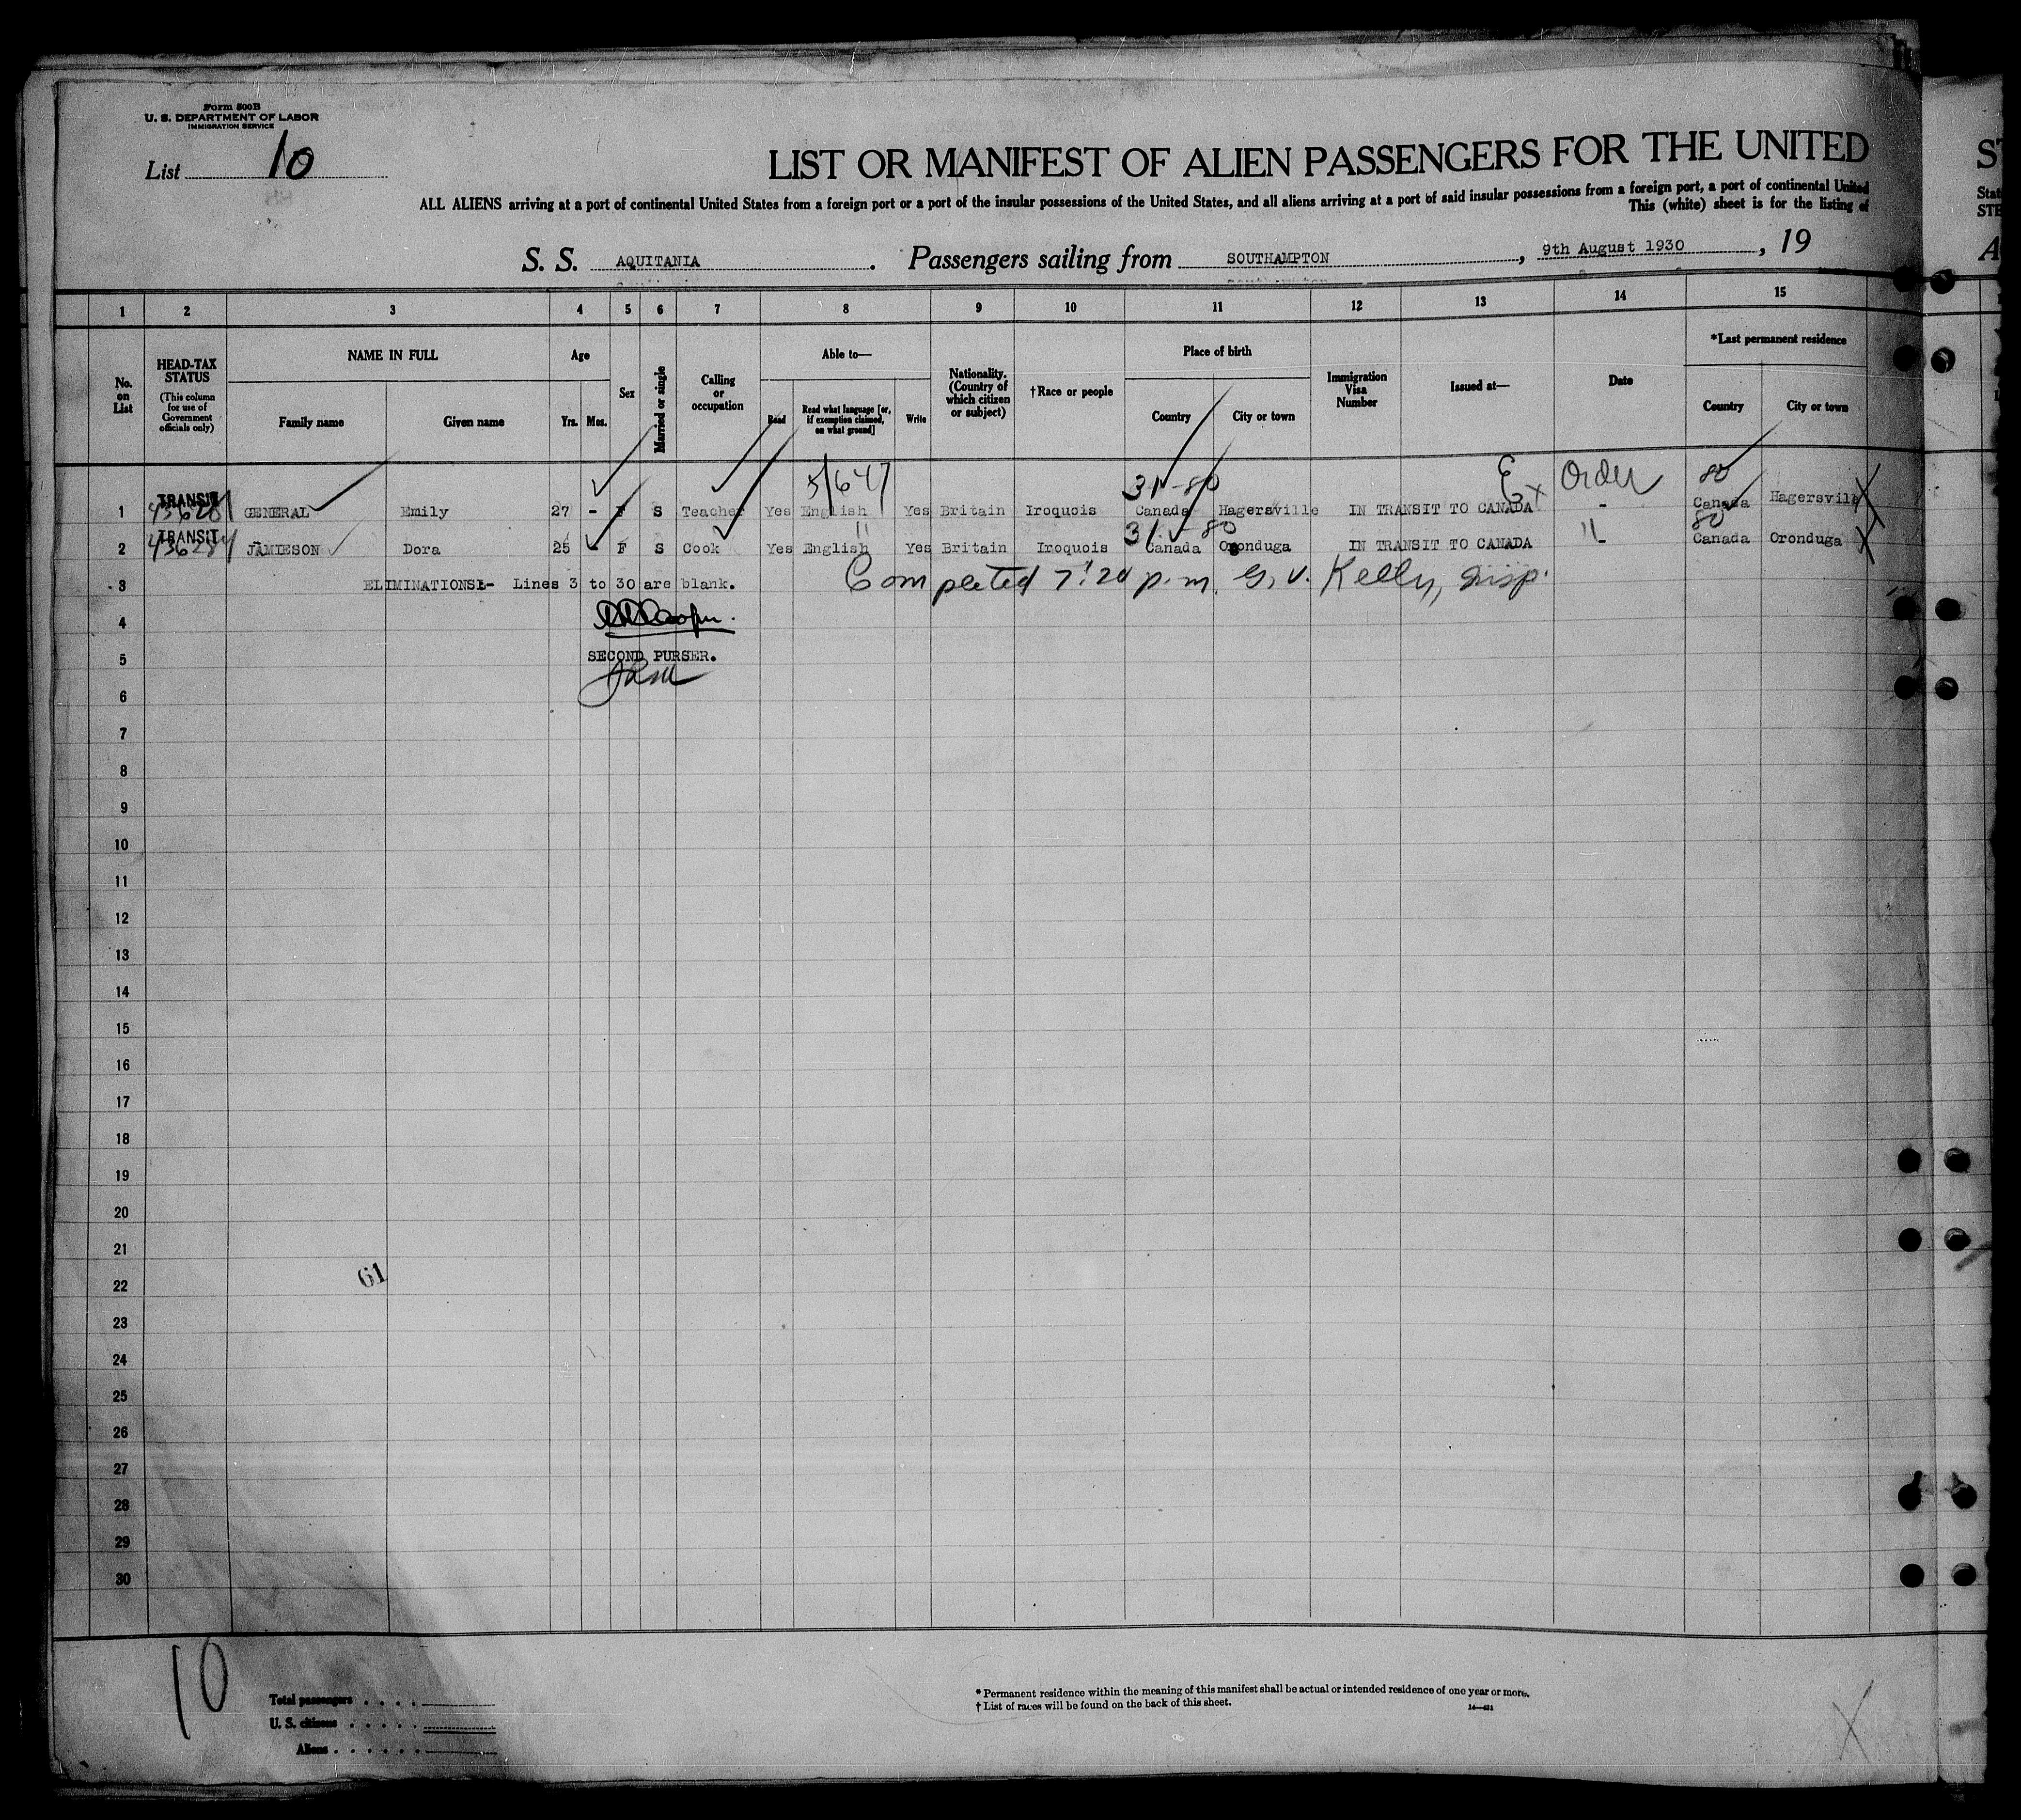 Form 500B
U. S. DEPARTMENT OF LABOR
IMMIGRATION SERVICE
List 10
LIST OR MANIFEST OF ALIEN PASSENGERS FOR THE UNITED
ALL ALIENS arriving at a port of continental United States from a foreign port or a port of the insular possessions of the United States, and all aliens arriving at a port of said insular possessions from a foreign port, a port of continental United
This (white) sheet is for the listing of
S. S. AQUITANIA. Passengers sailing from SOUTHAMPTON, 9th August 1930, 19
1 2 3 4 5 6 7 8 9 10 11 12 13 14 15
No. on List
HEAD-TAX STATUS
(This column for use of Government officials only)
NAME IN FULL
Family name Given name
Age
Yrs. Mos.
Sex
Married or single
Calling or occupation
Able to—
Read Read what language [or, if exemption claimed, on what ground] Write
Nationality. (Country of which citizen or subject)
†Race or people
Place of birth
Country City or town
Immigration Visa Number
Issued at—
Date
*Last permanent residence
Country City or town
5/647 31-80 Order 80
1 TRANSIT GENERAL Emily 27 - F S Teacher Yes English Yes Britain Iroquois Canada Hagersville IN TRANSIT TO CANADA - Canada Hagersville
" 31-80 80
2 TRANSIT JAMIESON Dora 25 - F S Cook Yes English Yes Britain Iroquois Canada Oronduga IN TRANSIT TO CANADA " - Canada Oronduga
3 ELIMINATIONS:- Lines 3 to 30 are blank. Completed 7:20 p.m. G. V. Kelly, Insp.
4
5 SECOND PURSER.
6
7
8
9
10
11
12
13
14
15
16
17
18
19
20
21
61
22
23
24
25
26
27
28
29
30
10
Total passengers
U. S. citizens
Aliens
* Permanent residence within the meaning of this manifest shall be actual or intended residence of one year or more.
† List of races will be found on the back of this sheet.